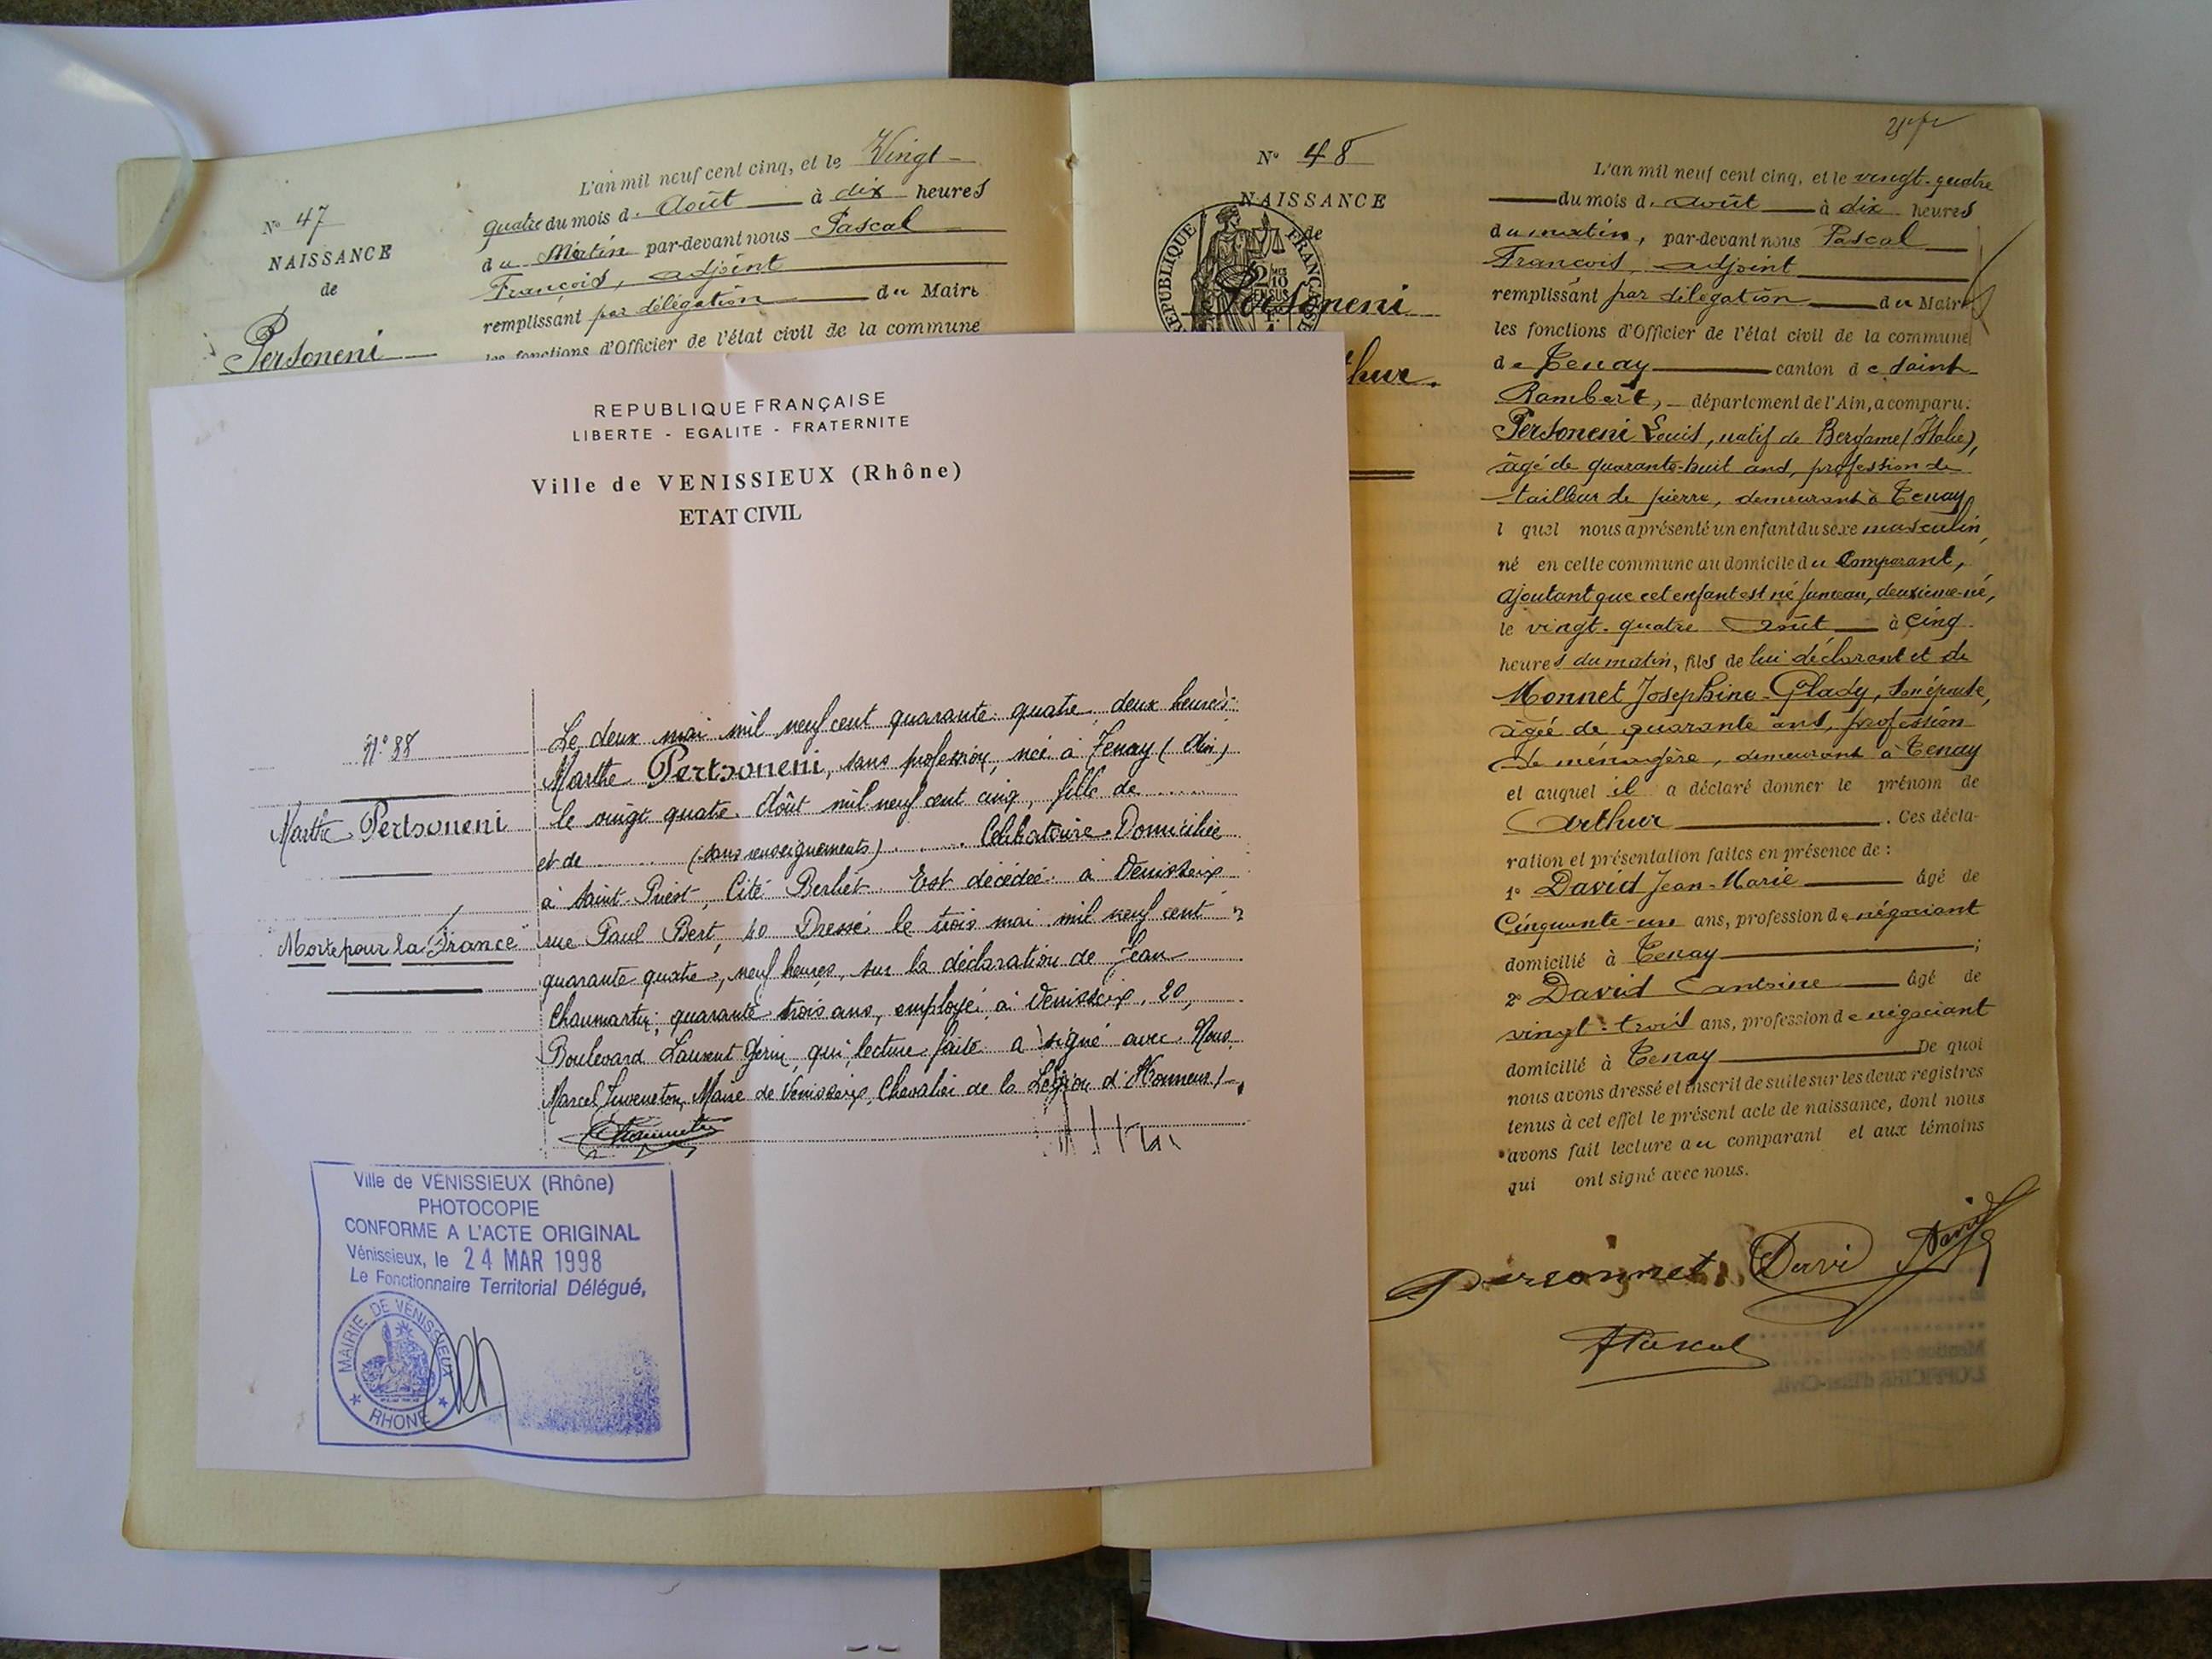 N° 47
NAISSANCE
de
Personeni
L'an mil neuf cent cinq, et le Vingt-
quatre du mois d. Août à dix heures
du Matin par-devant nous Pascal
François, adjoint
remplissant par délégation du Maire
les fonctions d'Officier de l'état civil de la commune
REPUBLIQUE FRANÇAISE
LIBERTE - EGALITE - FRATERNITE
Ville de VENISSIEUX (Rhône)
ETAT CIVIL
N° 88
Marthe Pertsoneni
"Morte pour la France"
Le deux mai mil neuf cent quarante quatre, deux heures
Marthe Pertsoneni, sans profession, née à Tenay (Ain)
le vingt quatre Août mil neuf cent cinq, fille de
et de (sans renseignements) Célibataire. Domiciliée
à Saint-Priest, Cité Berliet. Est décédée à Venissieux
rue Paul Bert, 40 Dressé le trois mai mil neuf cent
quarante quatre, neuf heures, sur la déclaration de Jean
Chaumartin, quarante trois ans, employé à Venissieux, 20,
Boulevard Laurent Gerin, qui, lecture faite a signé avec Nous,
Marcel Juveneton, Maire de Venissieux, Chevalier de la Légion d'Honneur /.
Ville de VÉNISSIEUX (Rhône)
PHOTOCOPIE
CONFORME A L'ACTE ORIGINAL
Vénissieux, le 24 MAR 1998
Le Fonctionnaire Territorial Délégué,
MAIRIE DE VÉNISSIEUX
RHONE
N° 48
NAISSANCE
de
Personeni
thur.
REPUBLIQUE FRANÇAISE
L'an mil neuf cent cinq, et le vingt-quatre
du mois d. août à dix heures
du matin, par-devant nous Pascal
François, adjoint
remplissant par délégation du Maire
les fonctions d'Officier de l'état civil de la commune
de Tenay canton de Saint
Rambert, département de l'Ain, a comparu:
Personeni Louis, natif de Bergame (Italie),
âgé de quarante-huit ans, profession de
tailleur de pierre, demeurant à Tenay
l quel nous a présenté un enfant du sexe masculin,
né en cette commune au domicile du Comparant,
ajoutant que cet enfant est né jumeau, deuxième-né,
le vingt-quatre août à cinq
heures du matin, fils de lui déclarant et de
Monnet Joséphine-Glady, son épouse,
âgée de quarante ans, profession
de ménagère, demeurant à Tenay
et auquel il a déclaré donner le prénom de
Arthur. Ces décla-
ration et présentation faites en présence de :
1° David Jean-Marie âgé de
Cinquante-un ans, profession de négociant
domicilié à Tenay ;
2° David Antoine âgé de
vingt-trois ans, profession de négociant
domicilié à Tenay De quoi
nous avons dressé et inscrit de suite sur les deux registres
tenus à cet effet le présent acte de naissance, dont nous
avons fait lecture au comparant et aux témoins
qui ont signé avec nous.
Personnet Davi David
Pascal